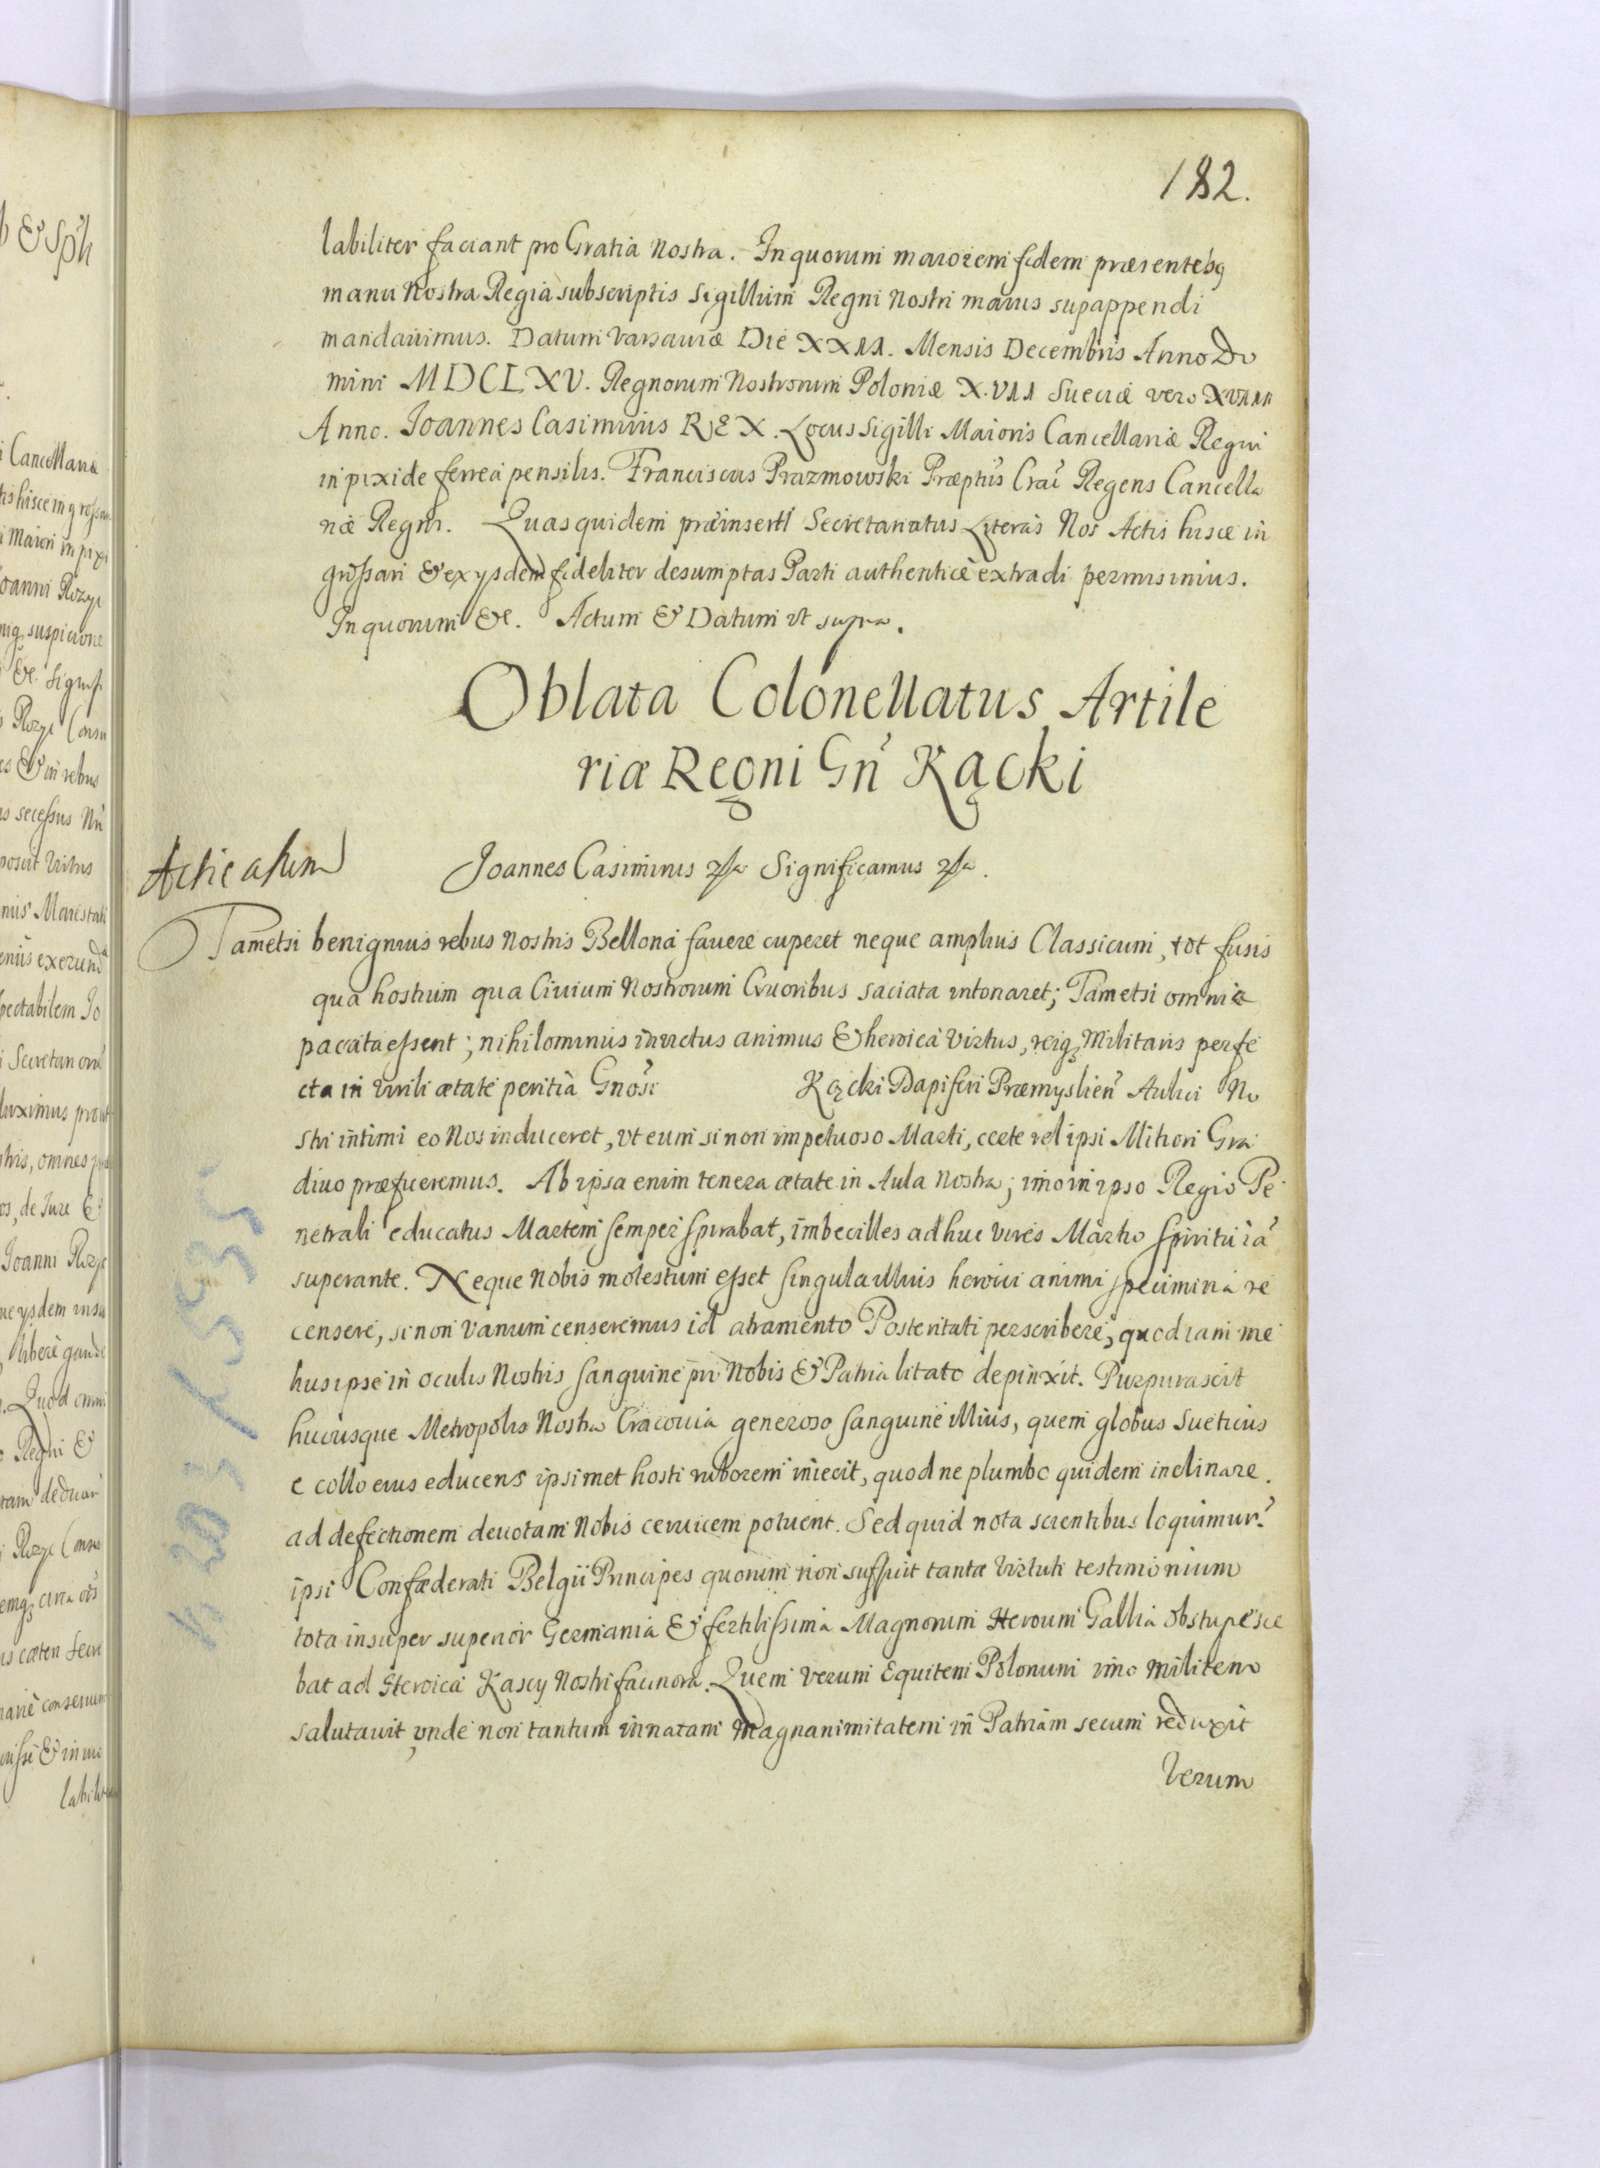 182.
labiliter faciant pro Gratia Nostra. In quorum maiorem fidem præsentibq
manu Nostra Regia subscriptis Sigillum Regni Nostri maius supappendi
mandauimus. Datum Varsauiæ Die XXII. Mensis Decembris Anno Do
mini MDCLXV. Regnorum Nostrorum Poloniæ X.VII Sueciæ vero XVIII
Anno. Joannes Casimirus REX. Locus Sigilli Maioris Cancellariæ Regni
in pixide ferrea pensilis. Franciscus Prazmowski Præptus Craĩ Regens Cancella
riæ Regni. Quas quidem præinsertI Secretariatus Literas Nos Actis hisce in
grossari & ex ysdem fideliter desumptas Parti authenticè extradi permisimus.
In quorum &c. Actum & Datum vt supra.
Oblata Colonellatus Artile
riæ Regni Gñ Kącki
Acticatum
Joannes Casimirus Significamus
Tametsi benignius rebus Nostris Bellona fauere cuperet neque amplius Classicum, tot fusis
qua hostium qua Ciuium Nostrorum Cruoribus saciata intonaret; Tametsi omnia
paccata essent; nihilominus inuictus animus & heroica Virtus, reiq Militaris perfe
cta in virili ætate peritia Gnosi Kącki Dapiferi Præmyslien Aulici No
stri intimi eo Nos induceret, vt eum si non impetuoso Marti, certe vel ipsi Mitiori Gra
diuo præficeremus. Ab ipsa enim tenera ætate in Aula Nostra; imo in ipso Regio Pe
netrali educatus Martem semper spirabat, imbecilles adhuc vires Martio spiritu iã
superante. Neque Nobis molestum esset singula illius heroici animi specimina re
censere, si non vanum censeremus id atramento Posteritati perscribere, quod iam me
lius ipse in oculis Nostris sanguine pro Nobis & Patria litato depinxit. Purpurascit
hucusque Metropolis Nostra Cracouia generoso sanguine illius, quem globus Sueticus
e collo eius educens ipsimet hosti ruborem iniecit, quod ne plumbo quidem inclinare
ad defectionem deuotam Nobis ceruicem potuerit. Sed quid nota scientibus loquimur?
ipsi Confæderati Belgii Principes quorum non sufficit tantæ Virtuti testimonium
tota insuper superior Germania & fertilissima Magnorum Heroum Gallia obstupesce
bat ad Heroica Kascy Nostri facinora. Quem verum Equitem Polonum imo militem
salutauit, vnde non tantum innatam Magnanimitatem in Patriam secum reduxit
Verum